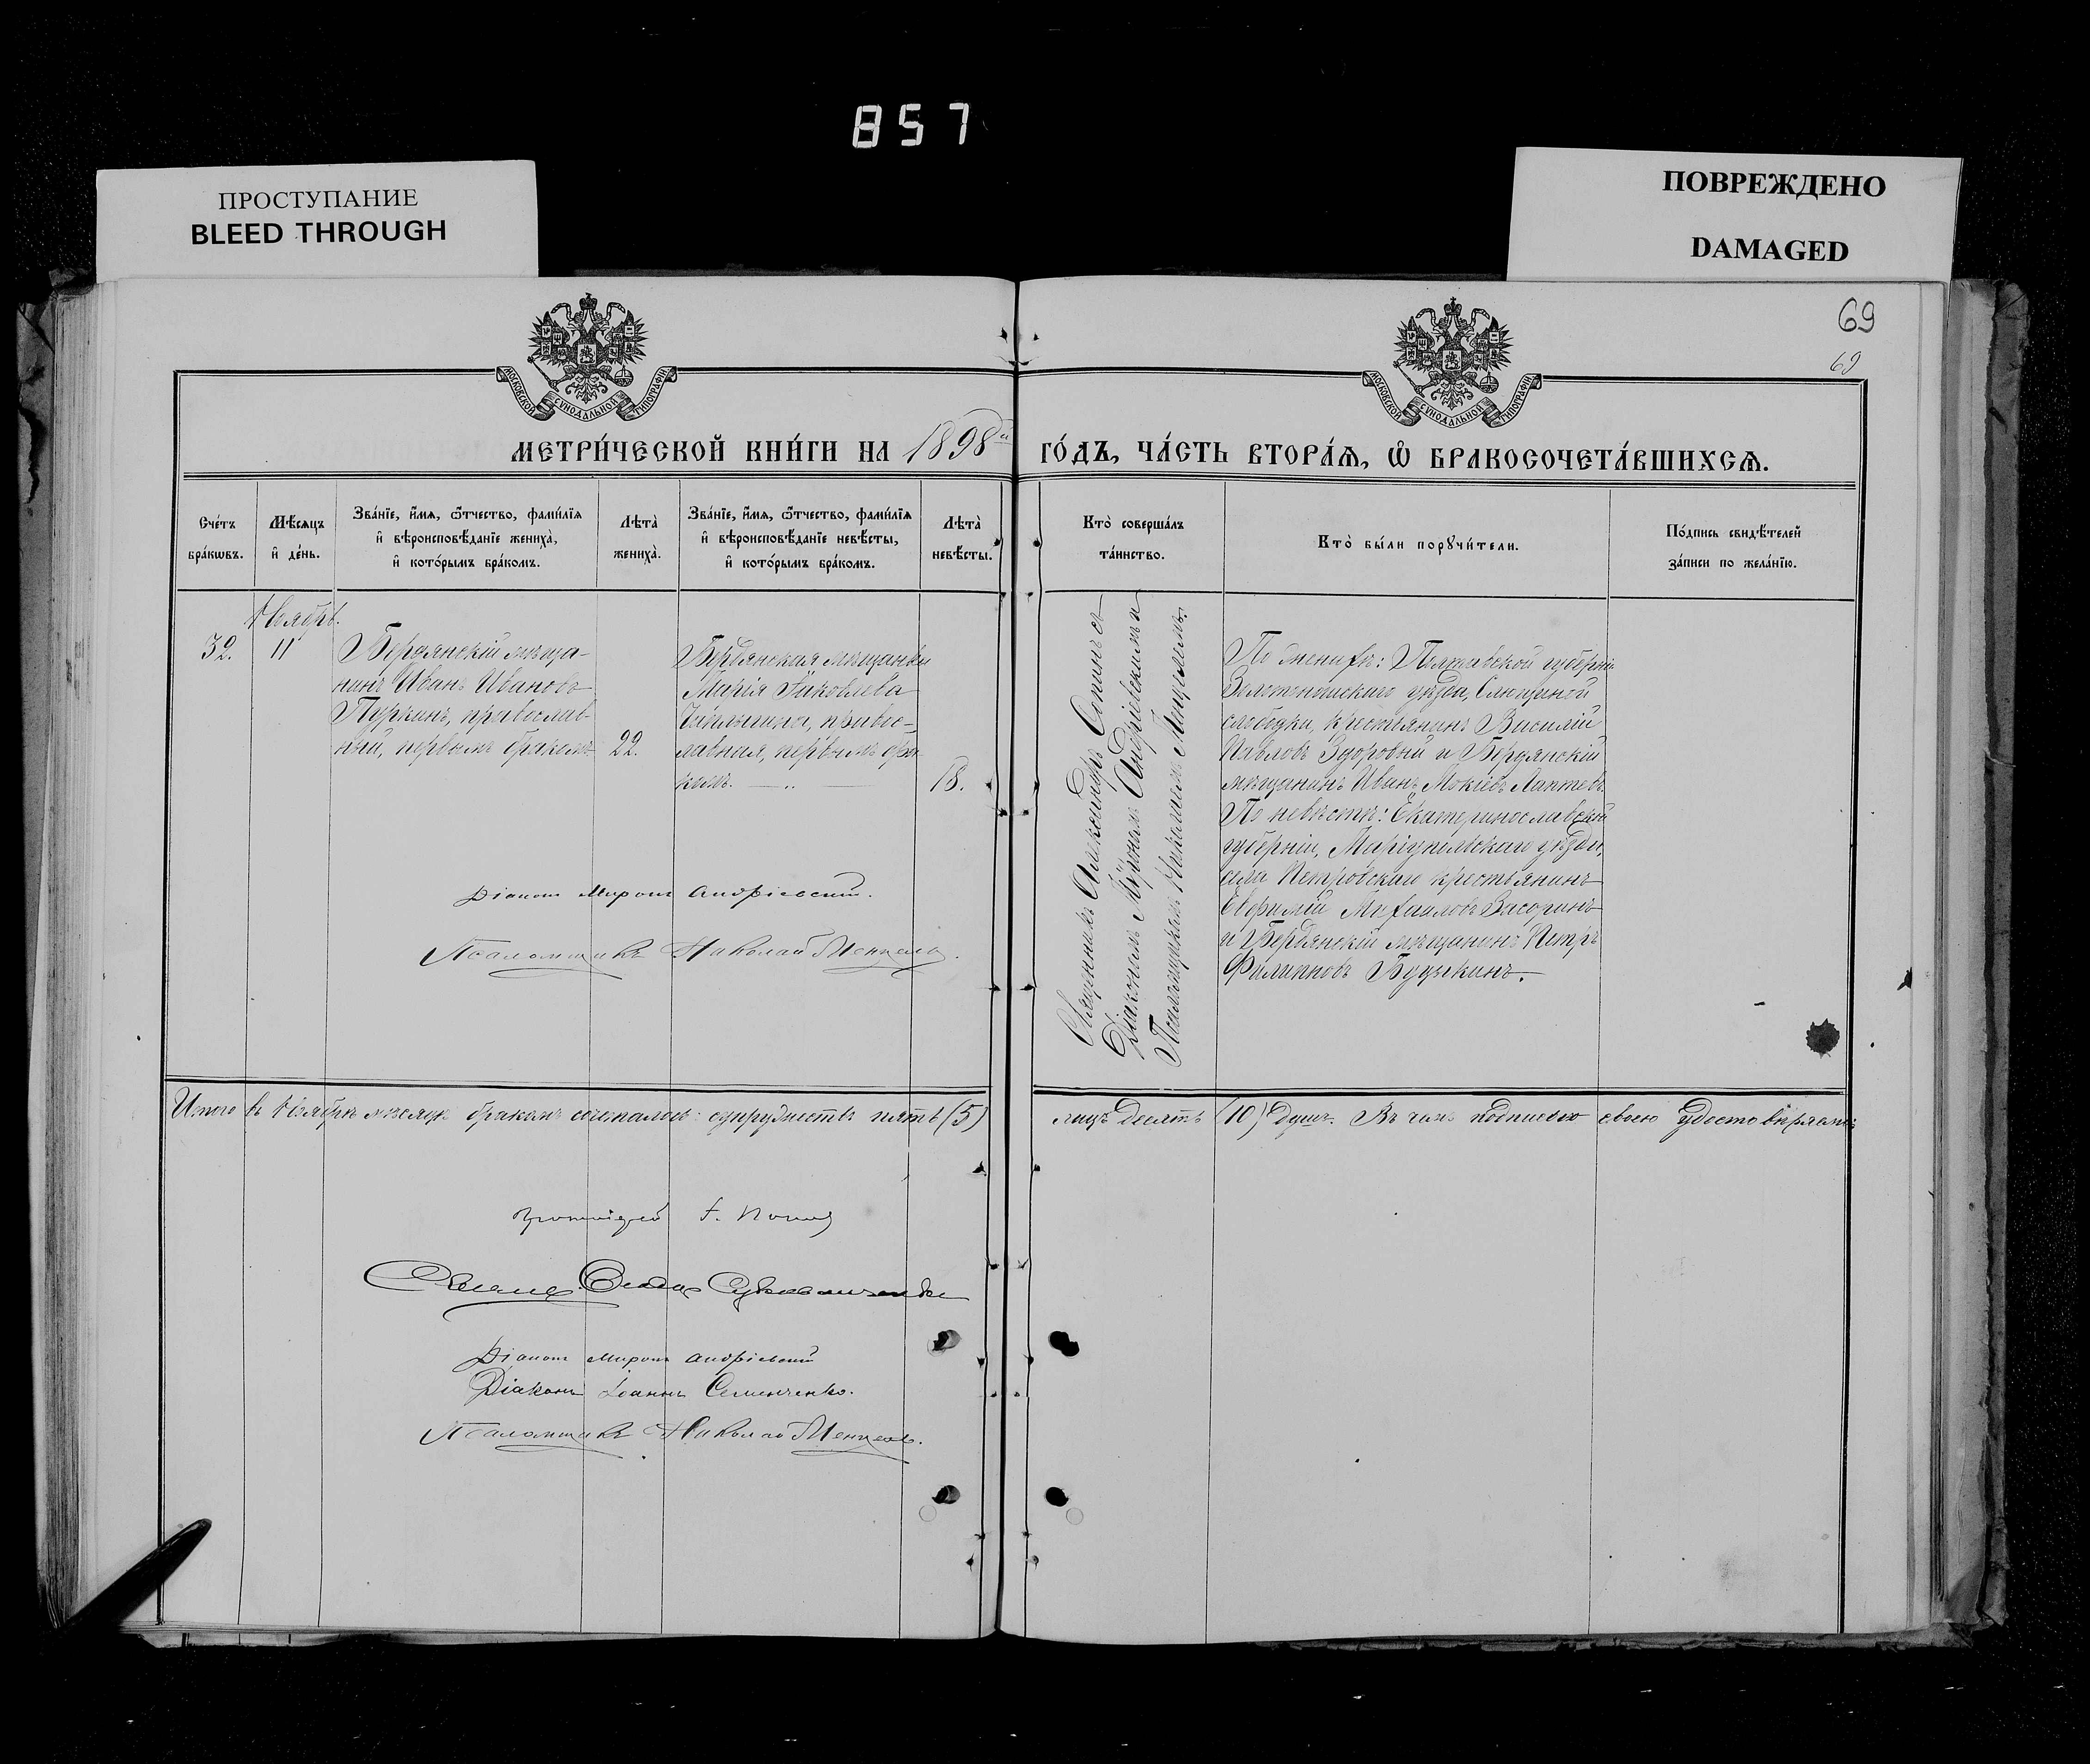 857
ПРОСТУПАНИЕ
BLEED THROUGH
ПОВРЕЖДЕНО
DAMAGED
69
69
МОСКОВСКОЙ СѴНОДАЛЬНОЙ ТИПОГРАФІИ
МОСКОВСКОЙ СѴНОДАЛЬНОЙ ТИПОГРАФІИ
МЕТРИ́ЧЕСКОЙ КНИ́ГИ НА 1898й ГО́ДЪ, ЧА́СТЬ ВТОРА́Ѧ, Ѡ҆ БРАКОСОЧЕТА́ВШИХСѦ.
Сче́тъ
бра́кѡвъ.
Мѣ́сѧцъ
и҆ де́нь.
Зва́нїе, и҆́мѧ, ѻ҆́тчество, фами́лїѧ
и҆ вѣроисповѣ́данїе жениха̀,
и҆ кото́рымъ бра́комъ.
Лѣта̀
жениха̀.
Зва́нїе, и҆́мѧ, ѻ҆́тчество, фами́лїѧ
и҆ вѣроисповѣ́данїе невѣ́сты,
и҆ кото́рымъ бра́комъ.
Лѣта̀
невѣ́сты.
Кто̀ соверша́лъ
та́инство.
Кто̀ бы́ли порꙋчи́тели.
По́дпись свидѣ́телей
за́писи по жела́нїю.
Ноябрь.
32.
11
Бердянскій мѣща-
нинъ Иванъ Ивановъ
Пуркинъ, православ-
ный, первымъ бракомъ
22.
Бердянская мѣщанка
Марія Іаковлева
православная, первымъ бра-
комъ.
18.
Священникъ Александръ Сопинъ съ
Діакономъ Мѵрономъ Андріевскимъ и
Псаломщикомъ Николаемъ Менцелемъ.
По женихѣ: Полтавской губерніи
Золотоношскаго уѣзда,
слободки, крестьянинъ Василій
Павловъ Здоровый и Бердянскій
мѣщанинъ Иванъ Мокіевъ Лаптевъ.
По невѣстѣ: Екатеринославской
губерніи, Маріупольскаго уѣзда,
села Петровскаго крестьянинъ
Евфимій Михаиловъ Засоринъ
и Бердянскій мѣщанинъ Петръ
Филипповъ Будыкинъ.
Діаконъ Миронъ Андріевскій.
Псаломщикъ Николай Менцель.
Итого въ Ноябрѣ мѣсяцѣ бракомъ сочеталось: супружествъ пять (5) лицъ десять (10) душъ. Въ чемъ подписью своею удостовѣряемъ
Протоіерей
Діаконъ Миронъ Андріевскій
Діаконъ Іоаннъ Семенченко.
Псаломщикъ Николай Менцель.